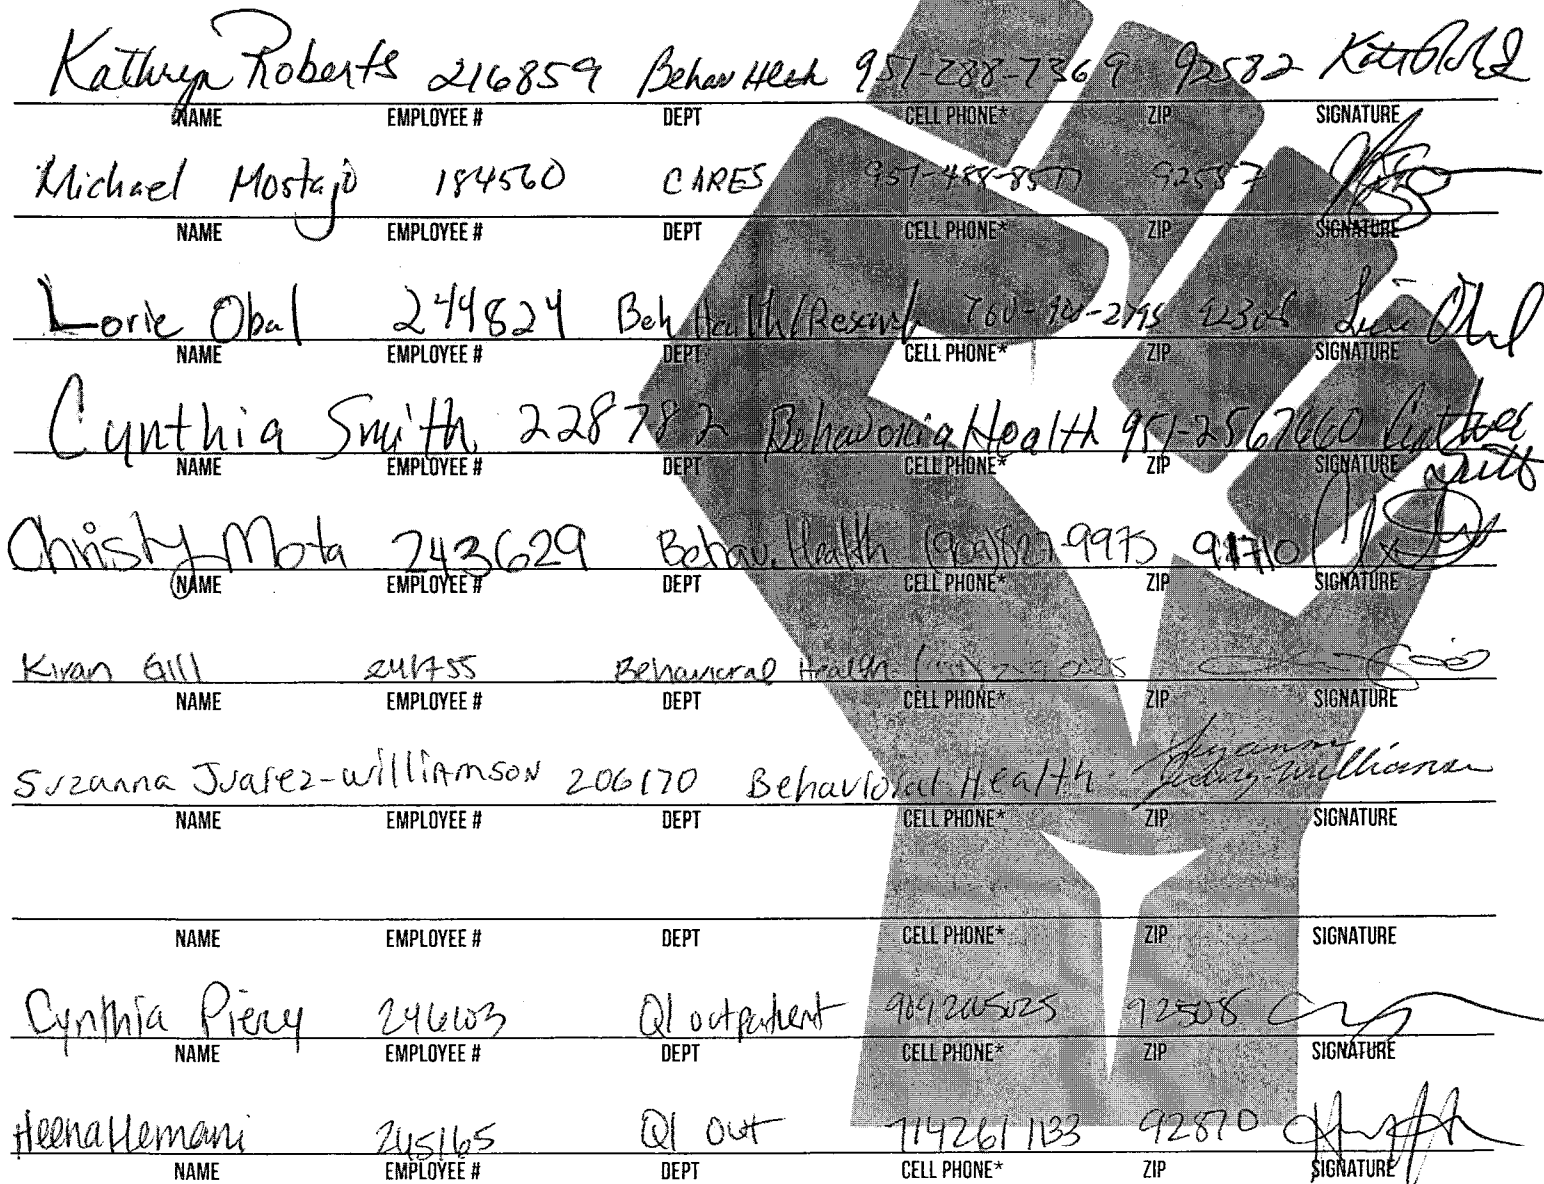 Kathryn Roberts 216859 Behav Hlth 951-288-7369 92582
NAME EMPLOYEE # DEPT CELL PHONE* ZIP SIGNATURE
Michael Mostajo 184560 CARES 951-488-8577 92557
NAME EMPLOYEE # DEPT CELL PHONE* ZIP SIGNATURE
Lorie Obal 244824 Beh Health/Research
NAME EMPLOYEE # DEPT CELL PHONE* ZIP SIGNATURE
Cynthia Smith 228782 Behavoria Health 951-2567660
NAME EMPLOYEE # DEPT CELL PHONE* ZIP SIGNATURE
Christy Mota 243629 Behav. Health (909)827-9975 91710
NAME EMPLOYEE # DEPT CELL PHONE* ZIP SIGNATURE
Kiran Gill 241755 Behavioral Health
NAME EMPLOYEE # DEPT CELL PHONE* ZIP SIGNATURE
Suzanna Juarez-williamson 206170 Behavioral Health
NAME EMPLOYEE # DEPT CELL PHONE* ZIP SIGNATURE
NAME EMPLOYEE # DEPT CELL PHONE* ZIP SIGNATURE
Cynthia Piery 246603 QI outpatient 9092005025 92508
NAME EMPLOYEE # DEPT CELL PHONE* ZIP SIGNATURE
Heena Hemani 245165 QI out 7142611133 92870
NAME EMPLOYEE # DEPT CELL PHONE* ZIP SIGNATURE